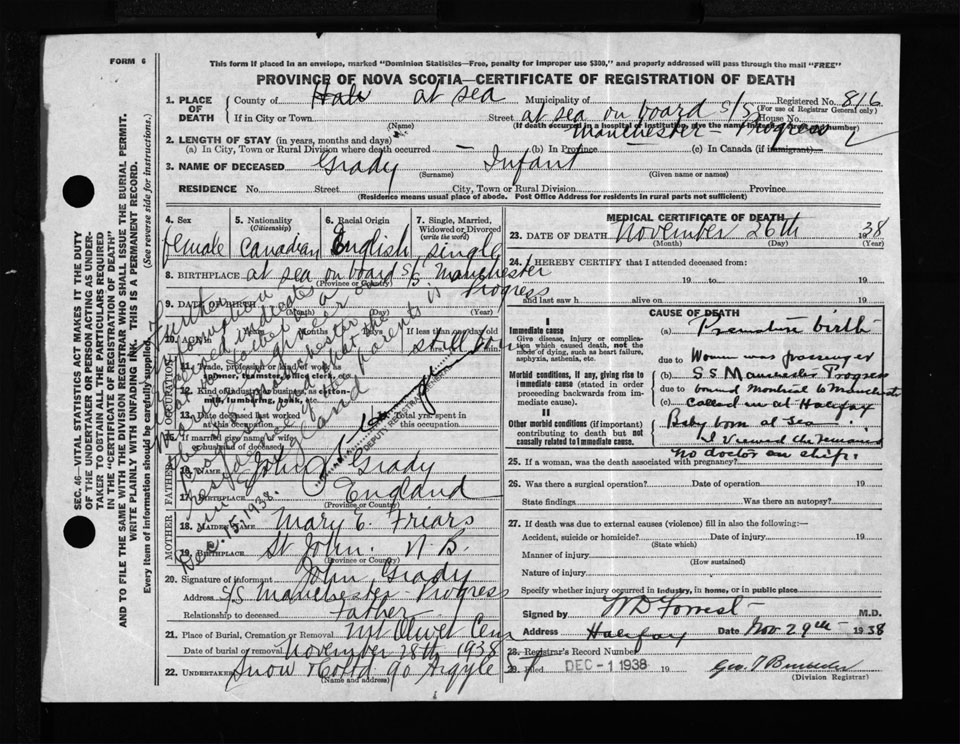 FORM 6
This form if placed in an envelope, marked "Dominion Statistics—Free, penalty for improper use $300," and properly addressed will pass through the mail "FREE"
PROVINCE OF NOVA SCOTIA—CERTIFICATE OF REGISTRATION OF DEATH
SEC. 46—VITAL STATISTICS ACT MAKES IT THE DUTY
OF THE UNDERTAKER OR PERSON ACTING AS UNDER-
TAKER TO OBTAIN ALL THE PARTICULARS REQUIRED
IN THE "CERTIFICATE OF REGISTRATION OF DEATH"
AND TO FILE THE SAME WITH THE DIVISION REGISTRAR WHO SHALL ISSUE THE BURIAL PERMIT.
WRITE PLAINLY WITH UNFADING INK. THIS IS A PERMANENT RECORD.
Every item of information should be carefully supplied. (See reverse side for instructions.)
1. PLACE OF DEATH
County of Hali at sea Municipality of Registered No. 816
(For use of Registrar General only)
If in City or Town Street at sea on board S/S House No.
(Name) (If death occurred in a hospital or institution, give the name instead of street and number)
Manchester Progress
2. LENGTH OF STAY (in years, months and days)
(a) In City, Town or Rural Division where death occurred — (b) In Province (c) In Canada (if immigrant)
3. NAME OF DECEASED Grady Infant
(Surname) (Given name or names)
RESIDENCE No. Street City, Town or Rural Division Province
(Residence means usual place of abode. Post Office Address for residents in rural parts not sufficient)
4. Sex
female
5. Nationality (Citizenship)
Canadian
6. Racial Origin
English
7. Single, Married, Widowed or Divorced (write the word)
single
8. BIRTHPLACE at sea on board S/S Manchester
(Province or Country)
Progress
9. DATE OF BIRTH (Month) (Day) (Year)
10. AGE Years Months Days If less than one day old
hrs. min.
still born
OCCUPATION
11. Trade, profession or kind of work as spinner, teamster, office clerk, etc.
12. Kind of industry or business, as cotton-mill, lumbering, bank, etc.
13. Date deceased last worked at this occupation
14. Total yrs. spent in this occupation
15. If married give name of wife or husband of deceased
Further
information
received indicates
Dec. 15, 1938.
DEPUTY REGISTRAR
FATHER
16. NAME John Grady
17. BIRTHPLACE England
(Province or Country)
MOTHER
18. MAIDEN NAME Mary E. Friars
19. BIRTHPLACE St John. N B.
(Province or Country)
20. Signature of informant John Grady
Address S/S Manchester Progress
Relationship to deceased Father
21. Place of Burial, Cremation or Removal Mt Olivet Cem
Date of burial or removal November 28th 1938
22. UNDERTAKER Snow & Co Ltd 90 Argyle
(Name and address)
MEDICAL CERTIFICATE OF DEATH
23. DATE OF DEATH November 26th 1938
(Month) (Day) (Year)
24. I HEREBY CERTIFY that I attended deceased from:
19 to 19
and last saw h alive on 19
CAUSE OF DEATH
I
Immediate cause
Give disease, injury or complication which caused death, not the mode of dying, such as heart failure, asphyxia, asthenia, etc.
Morbid conditions, if any, giving rise to immediate cause (stated in order proceeding backwards from immediate cause).
II
Other morbid conditions (if important) contributing to death but not causally related to immediate cause.
(a) Premature birth
due to Woman was passenger
(b) S.S. Manchester Progress
due to bound Montreal to Manchester
(c) called in at Halifax
Baby born at Sea
I viewed the remains
No doctor on ship.
25. If a woman, was the death associated with pregnancy?
26. Was there a surgical operation? Date of operation 19
State findings Was there an autopsy?
27. If death was due to external causes (violence) fill in also the following:—
Accident, suicide or homicide? Date of injury 19
(State which)
Manner of injury
(How sustained)
Nature of injury
Specify whether injury occurred in industry, in home, or in public place
Signed by W D Forrest M.D.
Address Halifax Date Nov. 29th 1938
28. Registrar's Record Number
29. Filed DEC - 1 1938 19
(Division Registrar)